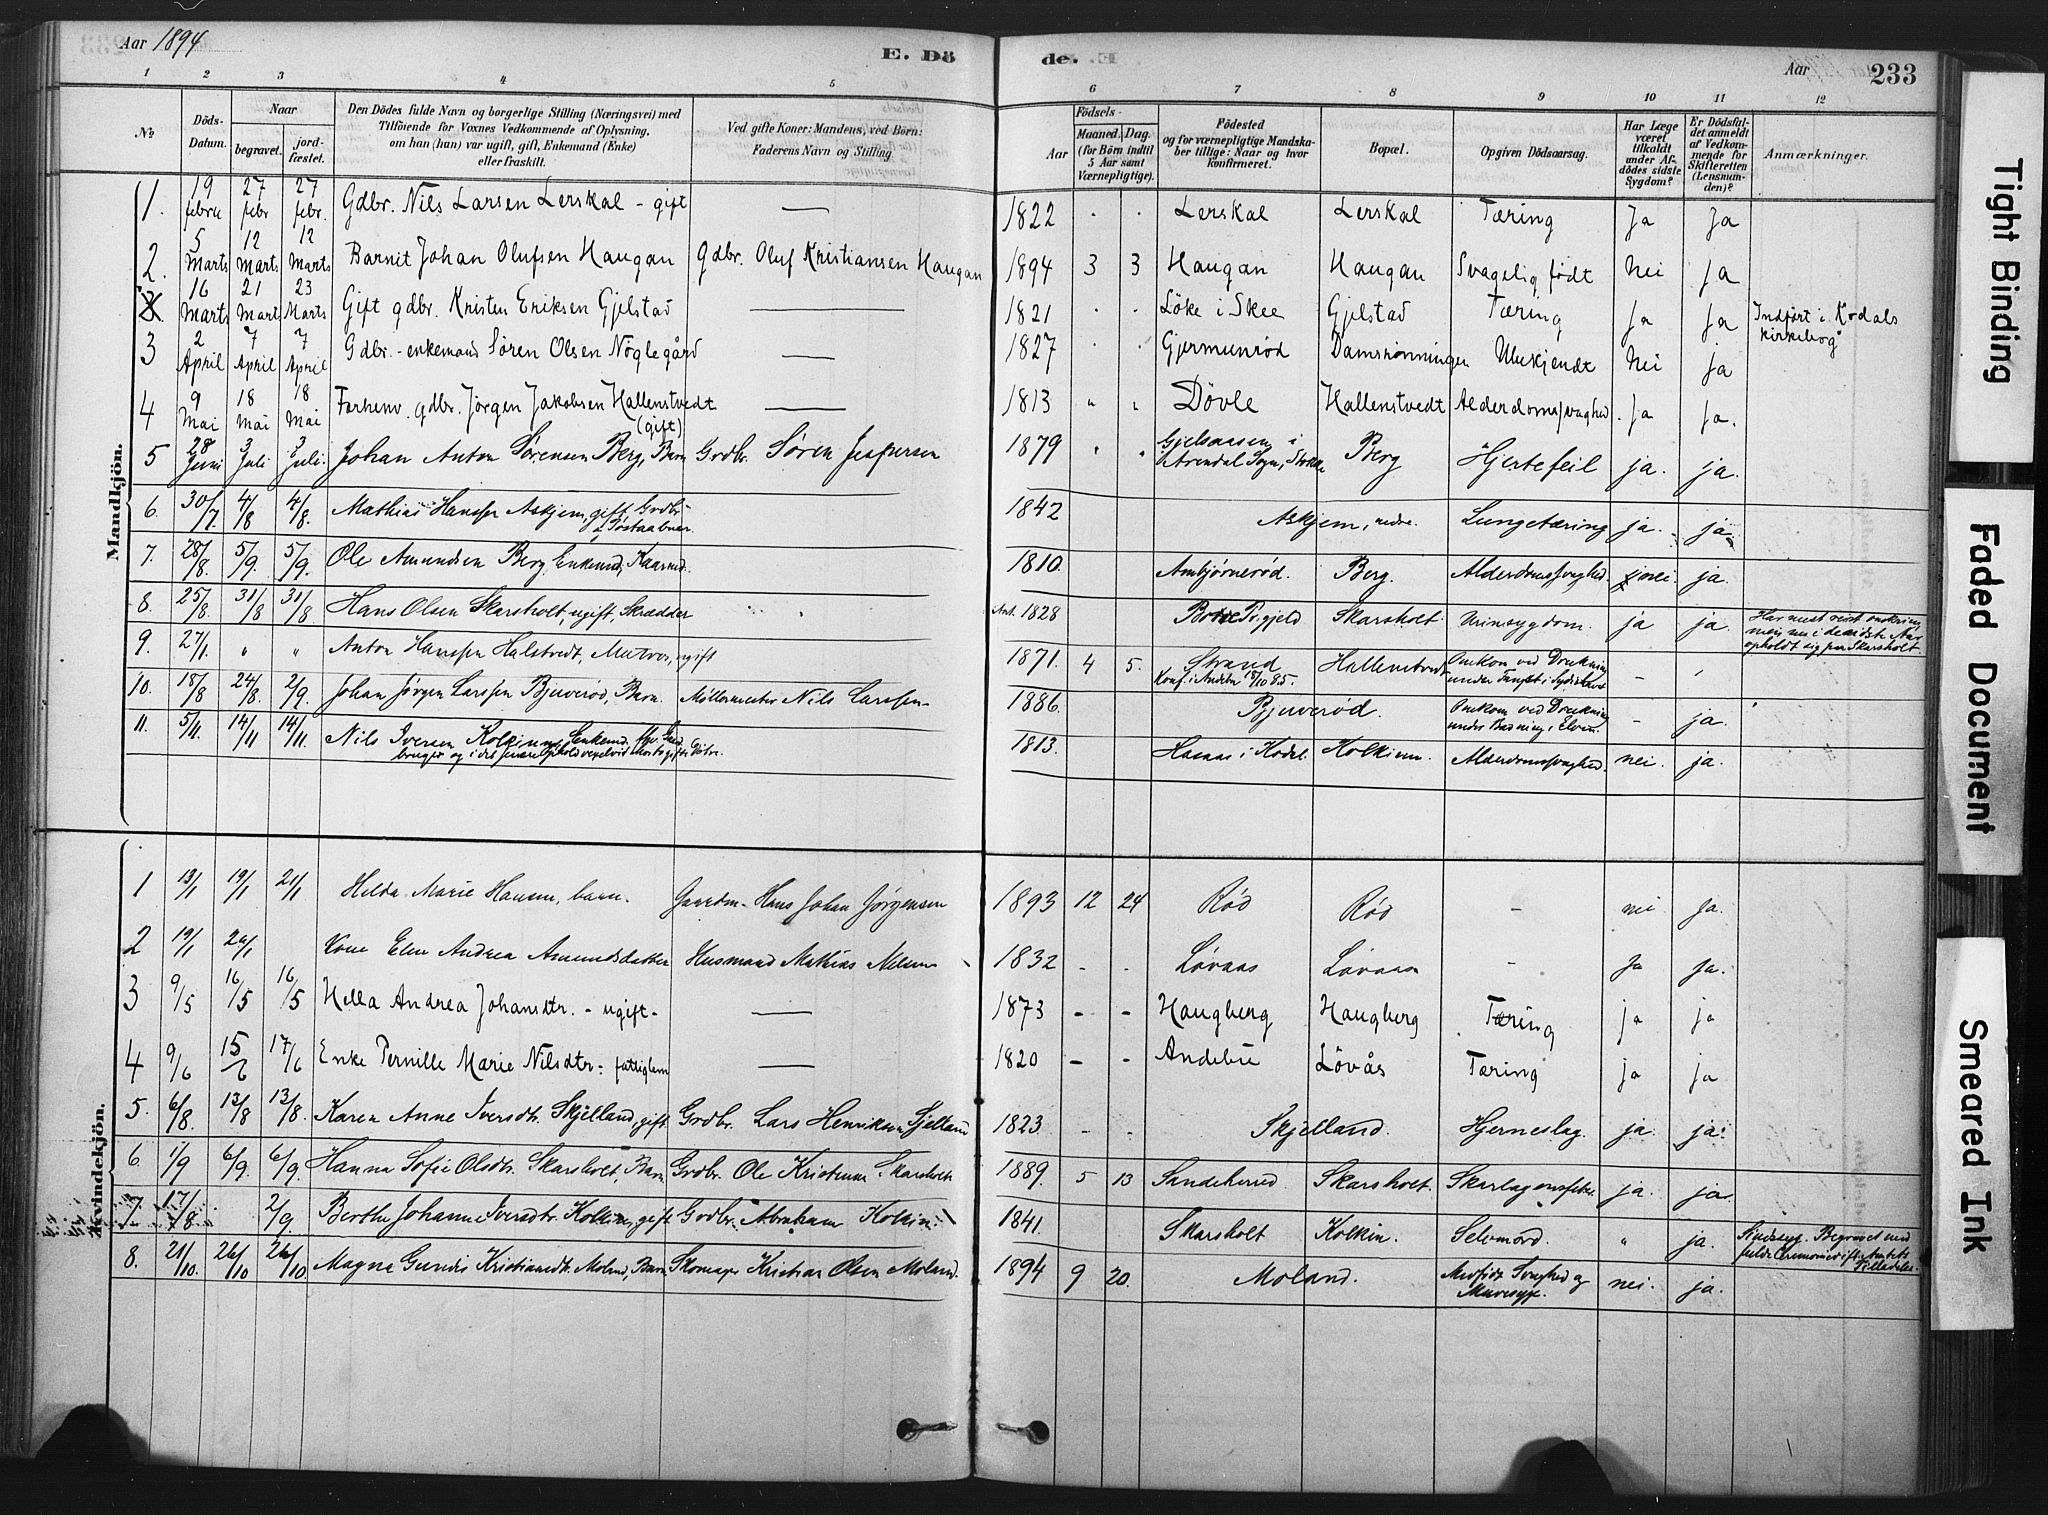 Aar 1894
E. Dö
de.
Aar
233
1 2 3 4 5 6 7 8 9 10 11 12
No
Döds-Datum.
Naar
begravet.
jord-fæstet.
Den Dödes fulde Navn og borgerlige Stilling (Næringsvei) med
Tilföiende for Voxnes Vedkommende af Oplysning,
om han (hun) var ugift, gift, Enkemand (Enke)
eller fraskilt.
Ved gifte Koner: Mandens, ved Börn:
Faderens Navn og Stilling
Födsels-
Aar
Maaned. Dag.
(for Börn indtil
5 Aar samt
Værnepligtige).
Födested
og for værnepligtige Mandska-
ber tillige: Naar og hvor
konfirmeret.
Bopæl.
Opgiven Dödsaarsag.
Har Læge
været
tilkaldt
under Af-
dödes sidste
Sygdom?
Er Dödsfal-
det anmeldt
af Vedkom-
mende for
Skifteretten
(Lensman-
den)?
Anmærkninger.
Mandkjön.
1. 19 febru 27 febr 27 febr. Gdbr. Nils Larsen Lerskal - gift — 1822 Lerskal Lerskal Tæring Ja Ja
2. 5 Marts 12 Marts 12 Marts Barnet Johan Olufsen Haugan Gdbr. Oluf Kristiansen Haugan 1894 3 3 Haugan Haugan Svagelig født Nei Ja
16 Marts 21 Mart 23 Marts Gift gdbr. Kristen Eriksen Gjelstad — 1821 Löke i Skee Gjelstad Tæring Ja Ja Indført i Kodals kirkebog
3 2 April 7 April 7 April Gdbr.-enkemand Sören Olsen Nöglegård — 1827 Gjermunrød Damsrönningen Ubekjendt Nei Ja
4 9 Mai 18 Mai 18 Mai Forhenv. gdbr. Jørgen Jakobsen Hallenstvedt (gift) — 1813 Dövle Hallenstvedt Alderdomssvaghed Ja Ja.
5 28 Juni 3 Juli 3 Juli. Johan Anton Sørensen Berg, Barn Grdbr. Søren Jespersen 1879 Arendal Sogn, Stokke Berg Hjertefeil ja. ja.
6. 30/7. 4/8 4/8. Mathias Hanssen Askjem, gift Grdbr. 1842 Askjem, nedre. Lungetæring ja. ja
7. 28/8. 5/9. 5/9. Ole Amundsen Berg, Enkemd, Kaarmd. 1810. Ambjørnerød. Berg. Alderdomssvaghed. nei ja.
8. 25/8. 31/8 31/8 Hans Olsen Skarsholt, ugift, Skrædder Ant. 1828 Skarsholt. Urinsygdom. ja ja.
9. 27/1. " " Anton Hanssen Halstvedt, Matros, ugift 1871. 4 5. Strand Konf. i Andebu 18/10 85. Hallenstvedt Omkom ved Drukning under Fangst i Sydishavet -
10. 18/8 24/8. 2/9. Johan Jørgen Larssen Bjuerød, Barn. Møllermester Nils Larssen 1886. Bjuerød. Omkom ved Drukning under Badning i Elven. - ja.
11. 5/11. 14/11 14/11. Nils Iversen Kolkinn, Enkemd, 1813. i Kodal Kolkinn. Alderdomssvaghed. nei. ja.
Kvindekjön.
1 13/1 19/1 21/1 Hilda Marie Hansen, barn. Gaardm. Hans Johan Jørgensen 1893 12 24 Rød Rød - nei Ja.
2 19/1 26/1 Kone Elen Andrea Amundsdatter Husmand Mathias Nilsen 1832 - - Løvaas Løvaas - Ja Ja.
3 9/5 16/5 16/5 Hella Andrea Johansdtr. - ugift - — 1873 - - Haugberg Haugberg Tæring ja ja
4 9/6 15/6 17/6 Enke Pernille Marie Nilsdtr: fattiglem — 1820 - - Andebu Lövås Tæring ja ja
5. 6/8. 13/8 13/8. Karen Anne Iversdtr. Skjelland, gift Grdbr. Lars Henriksen Skjelland 1823 - - Skjelland. Hjerneslag. ja. ja.
6. 1/9 6/9. 6/9. Hanna Sofie Olsdtr. Skarsholt, Barn Grdbr. Ole Kristensen Skarsholt 1889. 5 13 Sandeherred Skarsholt. Skarlagensfeber ja. ja.
7 17/8 2/9. Berthe Johanne Iversdtr. Kolkinn, gift Grdbr. Abraham Kolkin. 1841. Skarsholt Kolkin. Selvmord. " ja. Sindssyg. Begravet med fulde Ceremonier eft. Amtets Tilladelse.
8. 21/10. 26/10 26/10 Magna Gundis Kristiansdtr. Moland, Barn Skomager Kristian Olsen Moland. 1894 9 20. Moland. Medfødt Svaghed og Mavesyge. nei. ja.
Tight Binding
Faded Document
Smeared Ink